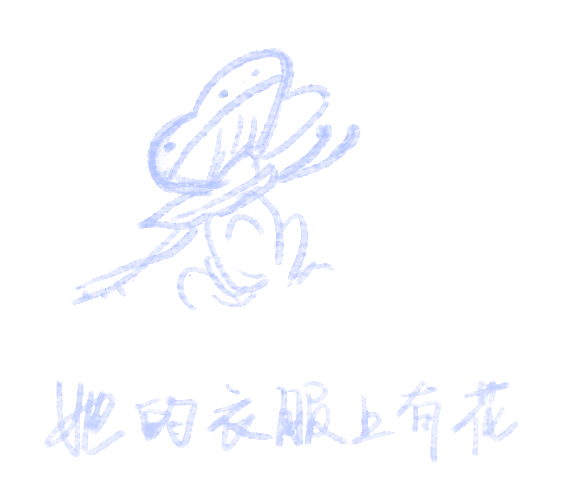 她的衣服上有花